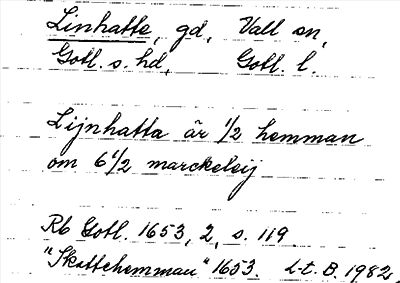 Linhatte, gd, Vall sn,
Gotl. s. hd, Gotl. l.
Lijnhatta är 1/2 hemman
om 6 1/2 marckeleij
Rb Gotl. 1653, 2, s. 119
"Skattehemman" 1653. L-t. B. 1982.